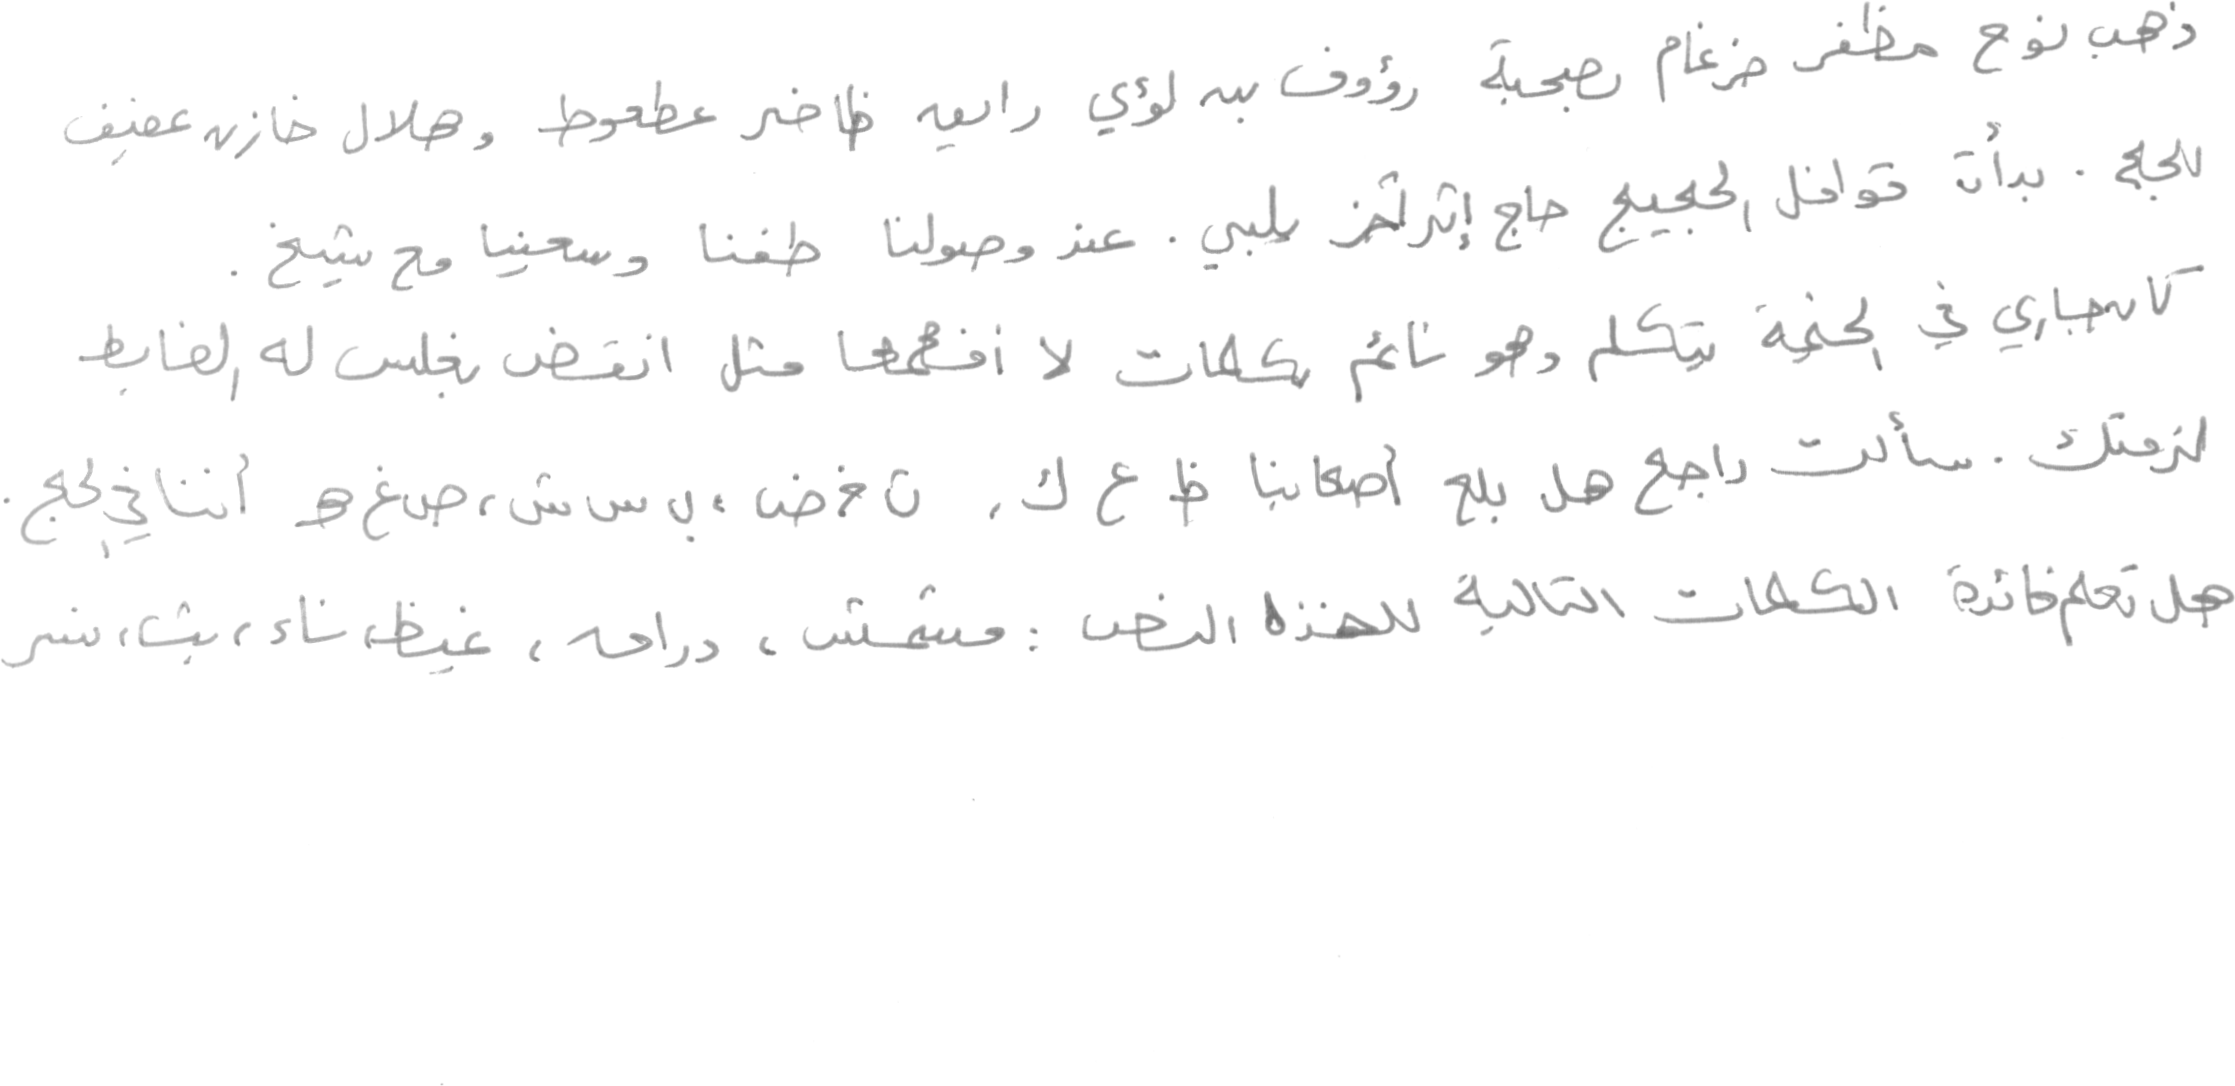 ذهب نوح مظفر ضرغام بصحبة رؤوف بن لؤي راعي ظافر عطعوط وهلال خازن عفيف
للحج . بدأت قوافل الحجيج حاج إثر آخر يلبي . عند وصولنا طفنا وسعينا مع شيخ .
كان جاري في الخيمة يتكلم وهو نائم بكلمات لا أفهمها مثل انقض بغلس له الضابط
لزمتك . سألت راجح هل بلع أصحابنا ظ ع ك ، ن خ ض ، ب س ش ، ص غ هـ أننا في الحج .
هل تعلم فائدة الكلمات التالية لهذا النص : مشمش ، دراهم ، غيظ ، شاء ، بث ، نسر